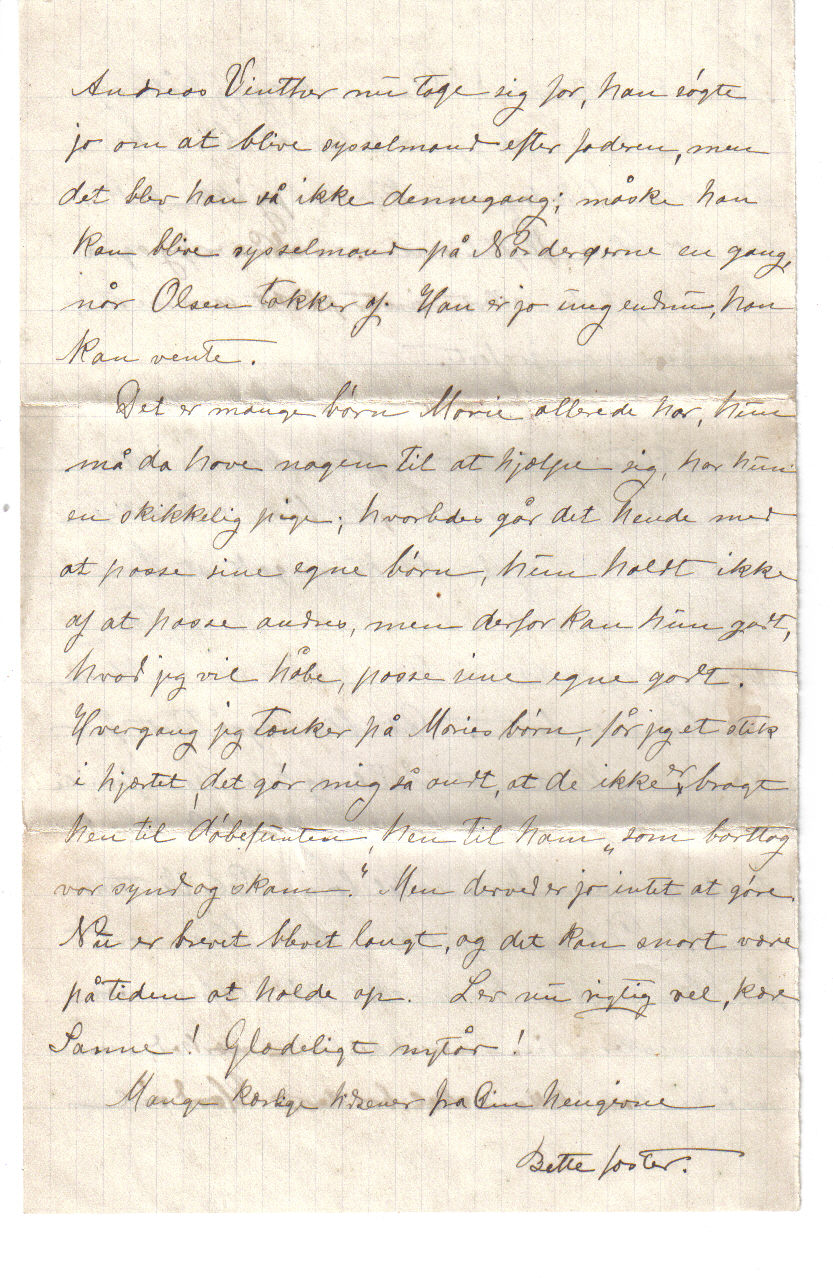 Andreas Vinther nu tage sig for, han søgte
jo om at blive sysselmand efter faderen, men
det blev han så ikke dennegang; måske han
kan blive sysselmand på Norderøerne en gang,
når Olsen takker af. Han er jo ung endnu, han
kan vente.
Det er mange børn Marie allerede har, hun
må da have nogen til at hjælpe sig, har hun
en skikkelig pige; hvorledes går det hende med
at passe sine egne børn, hun holdt ikke
af at passe andres, men derfor kan hun godt,
hvad jeg vil håbe, passe sine egne godt.
Hvergang jeg tænker på Maries børn, får jeg et stik
i hjærtet, det gør mig så ondt, at de ikke er bragt
hen til døbefunten, hen til ham „som borttog
vor synd og skam." Men derved er jo intet at gøre.
Nu er brevet blevet langt, og det kan snart være
på tiden at holde op. Lev nu rigtig vel, kære
Sanne! Glædeligt nytår!
Mange kærlige hilsener fra Din hengivne
Bette faster.